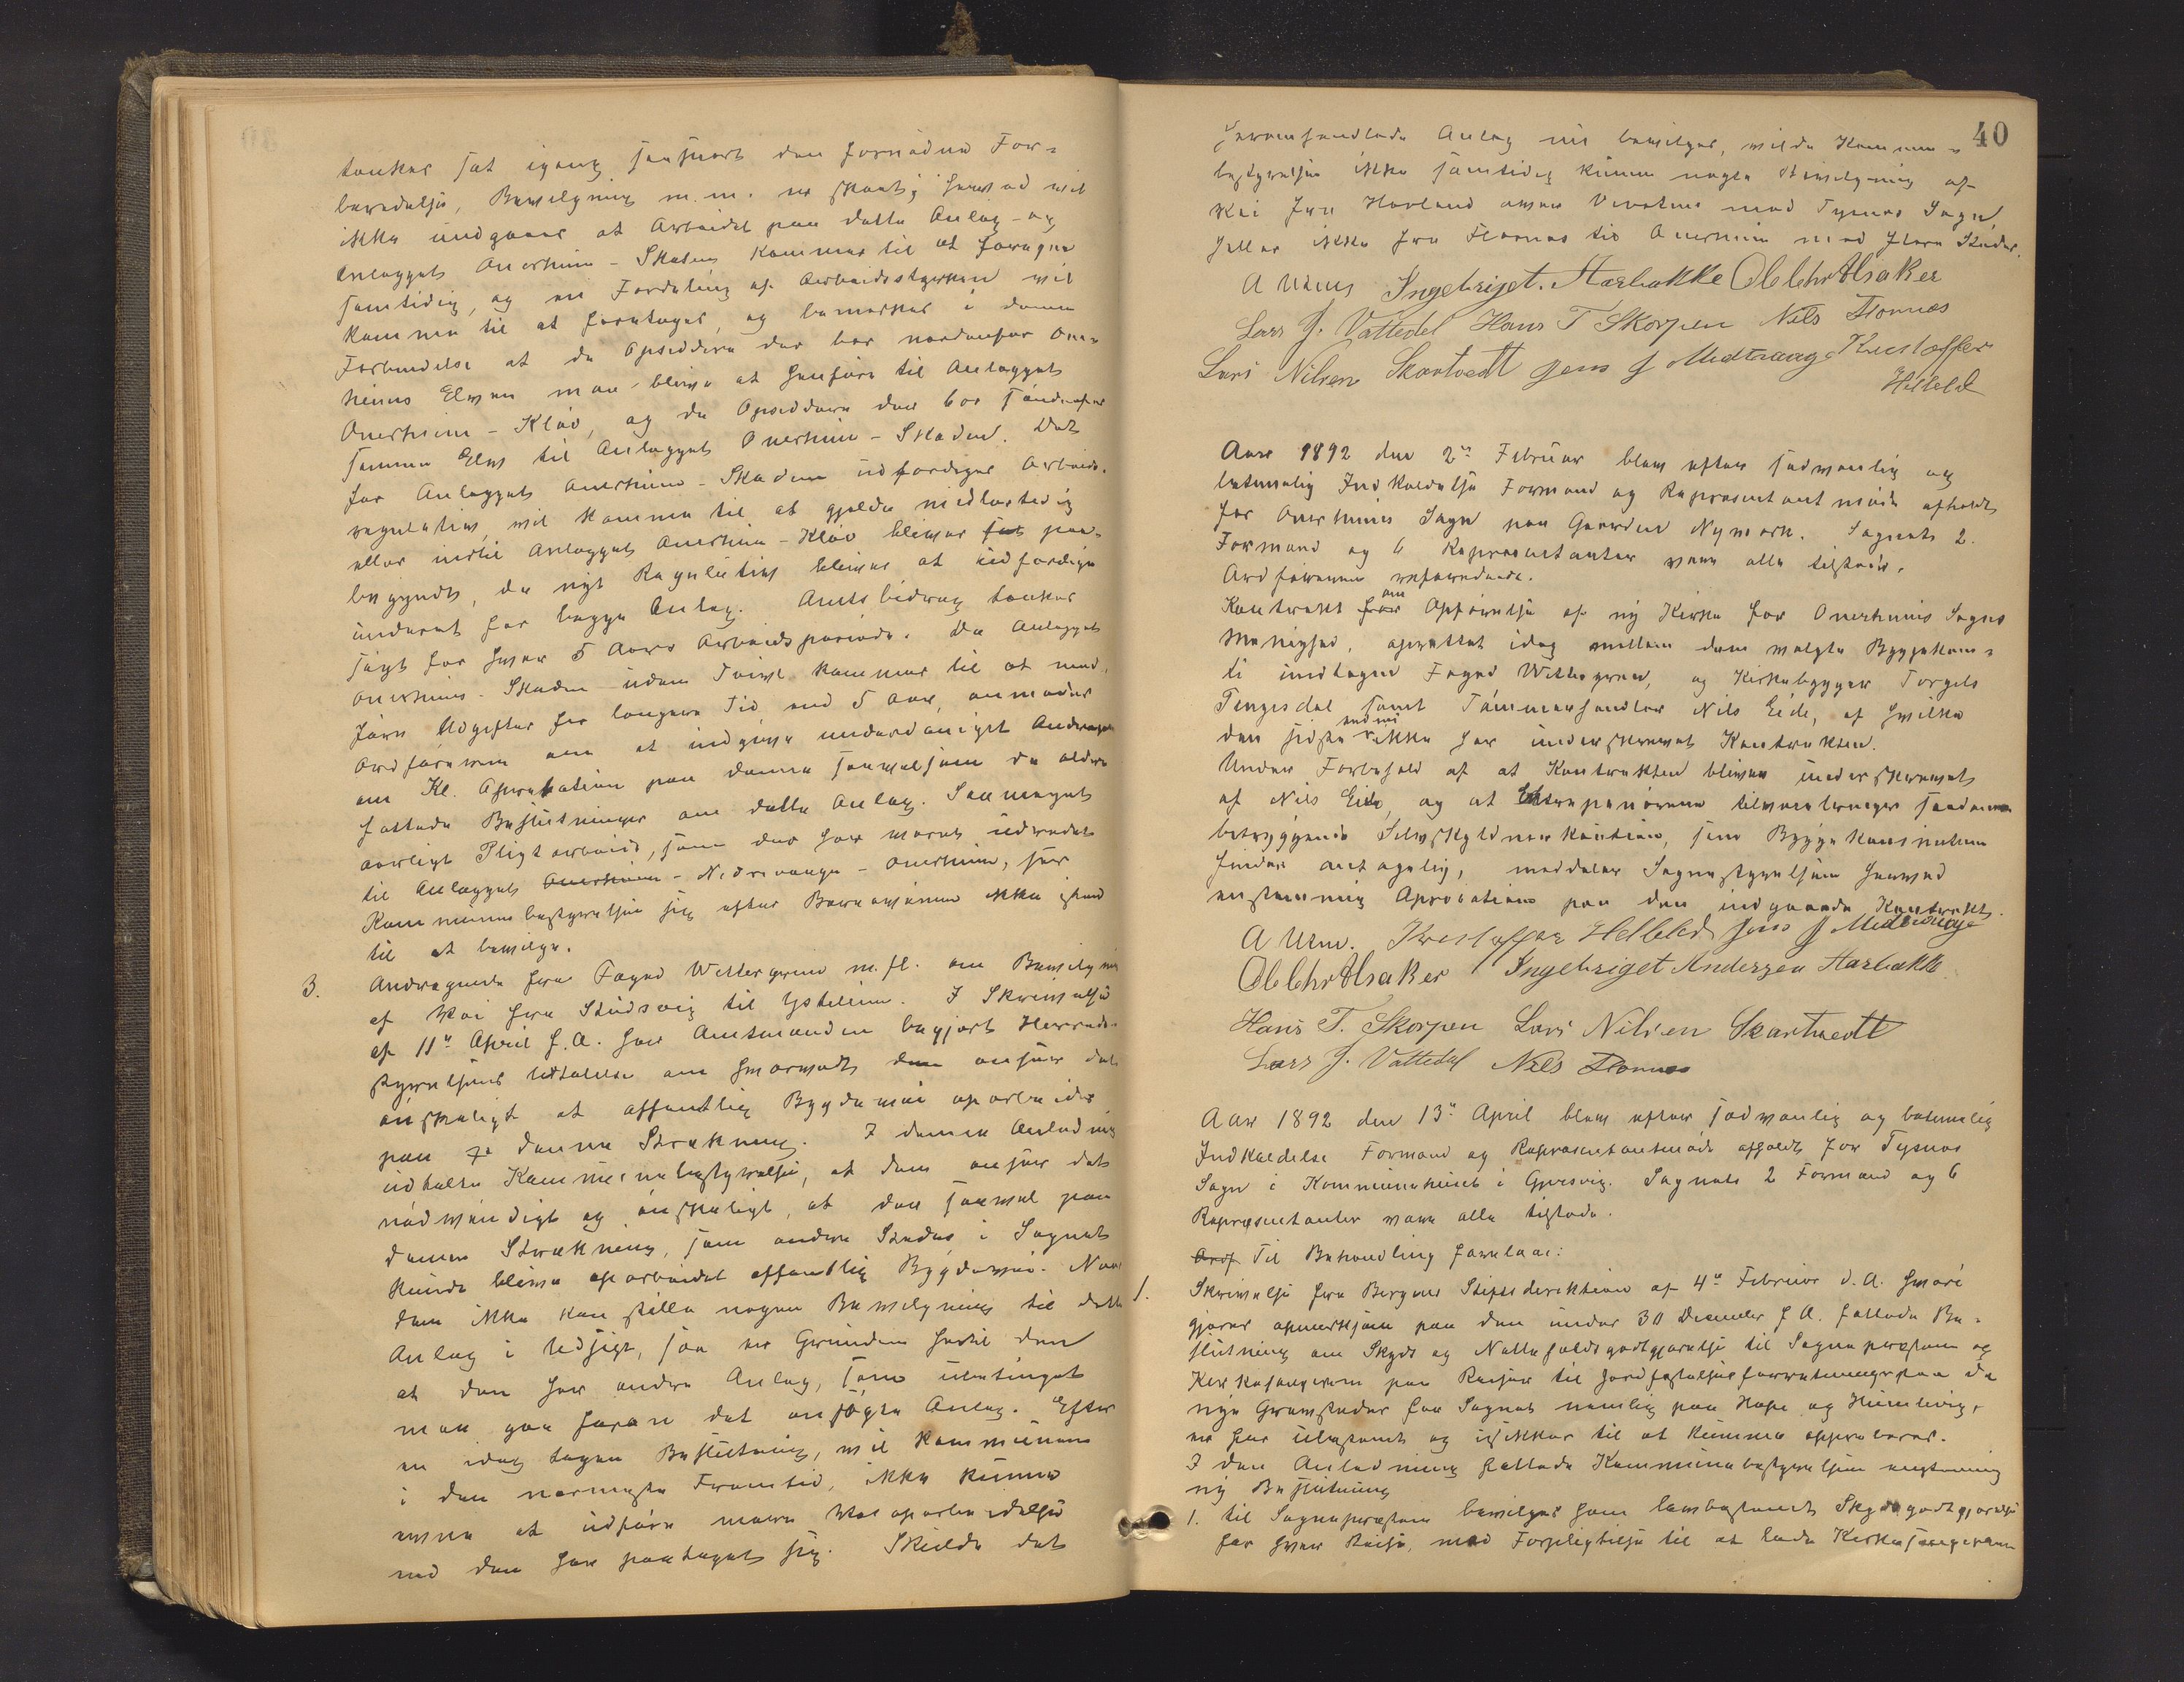 tænkes sat igang saasnart den fornødne For-
beredelse, Bevilgning m.m. er skeet; herved vil
ikke undgaaes at Arbeidet paa dette Anlæg og
Anlægget Onerheim - Skaden kommer til at foregaa
samtidig, og en Fordeling af Arbeidsstyrken vil
komme til at foretages, og bemerkes i denne
Forbindelse at de Opsiddere der bor nordenfor Oner-
heims Elven maa blive at henføre til Anlægget
Onerheim - Kløv, og de Opsiddere der bor søndenfor
samme Elv til Anlægget Onerheim - Skaden. Det
for Anlægget Onerheim - Skaden udfærdiget Arbeids-
regulativ vil komme til at gjælde midlertidig
eller indtil Anlægget Onerheim - Kløv bliver sat paa-
begyndt, da nyt Regulativ bliver at udfærdige
underet for begge Anlæg. Amtsbidrag tænkes
søgt for hver 5 Aars Arbeidsperiode. Da Anlægget
Onerheim - Skaden uden Tvivl kommer til at med-
føre Udgifter for længere Tid end 5 Aar, anmodes
Ordføreren om at indgive underdanigst Andragende
om Kl. Aprobation paa denne saavelsom de ældre
fattede Beslutninger om dette Anlæg. Saa meget
aarligt Pligtarbeide, som der har været udredet
til Anlægget Onerheim - Nedrevaage - Onerheim, ser
Kommunebestyrelsen sig efter Bevaasenne ikke istand
til at bevilge.
3. Andragende fra Foged Wettergreen m.fl. om Bevilgning
af Vei fra Studsvig til Ystelien. I Skrivelse
af 11te April f.A. har Amtmanden begjært Herreds-
styrelsens Udtalelse om hvorvidt den anser det
ønskeligt at offentlig Bygdevei oparbeides
paa denne Strækning. I denne Anledning
udtalte Kommunebestyrelsen, at den anser det
nødvendigt og ønskeligt, at der saavel paa
denne Strækning, som andre Steder i Sognet
kunde blive oparbeidet offentlig Bygdevei. Naar
den ikke kan stille nogen Bevilgning til dette
Anlæg i Udsigt, saa er Grunden hertil den
at den har andre Anlæg, som ubetinget
maa gaa foran det ansøgte Anlæg. Efter
en idag tagen Beslutning, vil Kommunen
i den nærmeste Fremtid, ikke kunne
evne at udføre mere Veioparbeidelse
end den har paataget sig. Skulde det
40
heromhandlede Anlæg nu bevilges, vilde Kommune-
bestyrelsen ikke samtidig kunne nægte Bevilgning af
Vei fra Hovland over Vevatne mod Tysnes Sogn,
heller ikke fra Flornes til Onerheim med flere Steder.
A Uren Ingebrigt. Aarbakke Ole Chr Alsaker
Lars J. Vattedal Hans T Skorpen Nils Flornes
Lars Nilsen Skartvedt Jens J Midtvaage Kristoffer
Helleld
Aar 1892 den 2den Februar blev efter sædvanlig og
betimelig Indkaldelse Formand og Repræsentantmøde afholdt
for Onerheims Sogn paa Gaarden Nymark. Sognets 2
Formænd og 6 Repræsentanter vare alle tilstede.
Ordføreren refererede.
Kontrakt for om Opførelse af ny Kirke for Onerheims Sogns
Menighed, oprettet idag mellem den valgte Byggekomi-
te undtagen Foged Wettergreen, og Kirkebygger Torgels
Tengesdal samt Tømmerhandler Nils Eide, af hvilke
den sidste endnu ikke har underskrevet Kontrakten.
Under Forbehold af at Kontrakten bliver underskrevet
af Nils Eide, og at Entreprenørerne tilveiebringer saadan
betryggende Selvskyldnerkaution, som Byggekomiteen
finder antagelig, meddeler Sognestyrelsen herved
enstemmig Aprobation paa den indgaaede Kontrakt.
A Uren. Kristoffer Helleld Jens J Midtvaage
Ole Chr Alsaker Ingebrigt Andersen Aarbakke
Hans T. Skorpen Lars Nilsen Skartvedt
Lars J. Vattedal Nils Flornes
Aar 1892 den 13de April blev efter sædvanlig og betimelig
Indkaldelse Formand og Repræsentantmøde afholdt for Tysnes
Sogn i Kommunehuset i Gjersvig. Sognets 2 Formænd og 6
Repræsentanter vare alle tilstede.
Ordf Til Behandling forelaae:
1. Skrivelse fra Bergens Stiftsdirektion af 4de Februar d.A. hvori
gjøres opmerksom paa den under 30 December f A. fattede Be-
slutning om Skyds og Natteholdsgodtgjørelse til Sognepresten og
Kirkesangeren paa Reiser til Jordfæstelsesforretninger paa de
nye Gravsteder her Sognet nemlig paa Hope og Heimlivig,
er for ubestemt og usikker til at kunne approberes.
I den Anledning fattede Kommunebestyrelsen enstemmig
ny Beslutning
1. til Sognepresten bevilges som lovbestemt Skydsgodtgjørelse
for hver Reise, med Forpligtelse til at lade Kirkesangeren